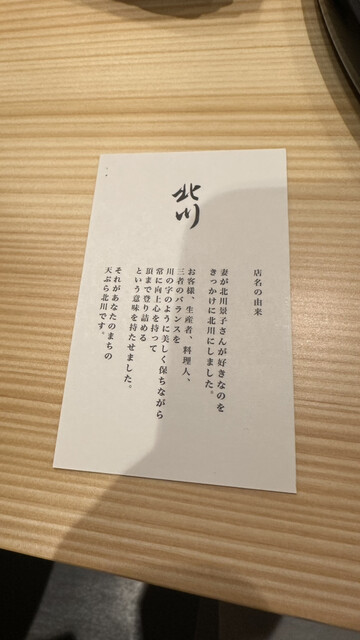 北川
店名の由来
妻が北川景子さんが好きなのを
きっかけに北川にしました。
お客様、生産者、料理人、
三者のバランスを
川の字のように美しく保ちながら
常に向上心を持って
頂まで登り詰める
という意味を持たせました。
それがあなたのまちの
天ぷら北川です。